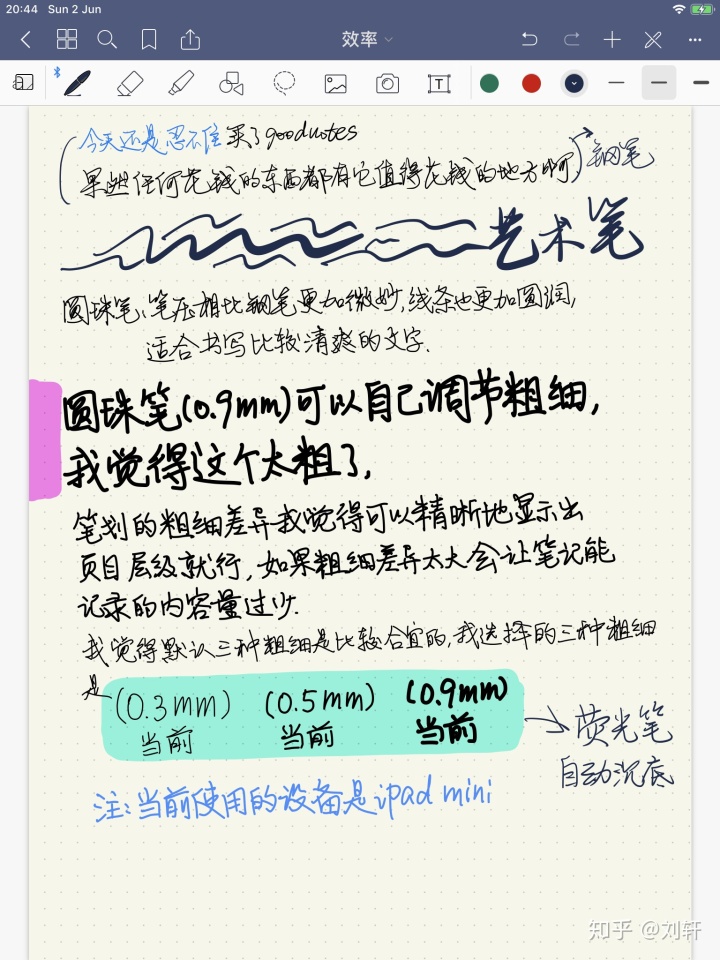 20:44 Sun 2 Jun
效率
T
(今天还是忍不住买了goodnotes
果然任何花钱的东西都有它值得花钱的地方啊)
钢笔
艺术笔
圆珠笔、笔压相比钢笔更加微妙,线条也更加圆润,
适合书写比较清爽的文字.
圆珠笔(0.9mm)可以自己调节粗细,
我觉得这个太粗了,
笔划的粗细差异我觉得可以精晰地显示出
页目层级就行,如果粗细差异太大会让笔记能
记录的内容量过少.
我觉得默认三种粗细是比较合宜的,我选择的三种粗细
是 (0.3mm) (0.5mm) (0.9mm)
当前 当前 当前
荧光笔
自动沉底
注:当前使用的设备是ipad mini
知乎 @刘轩